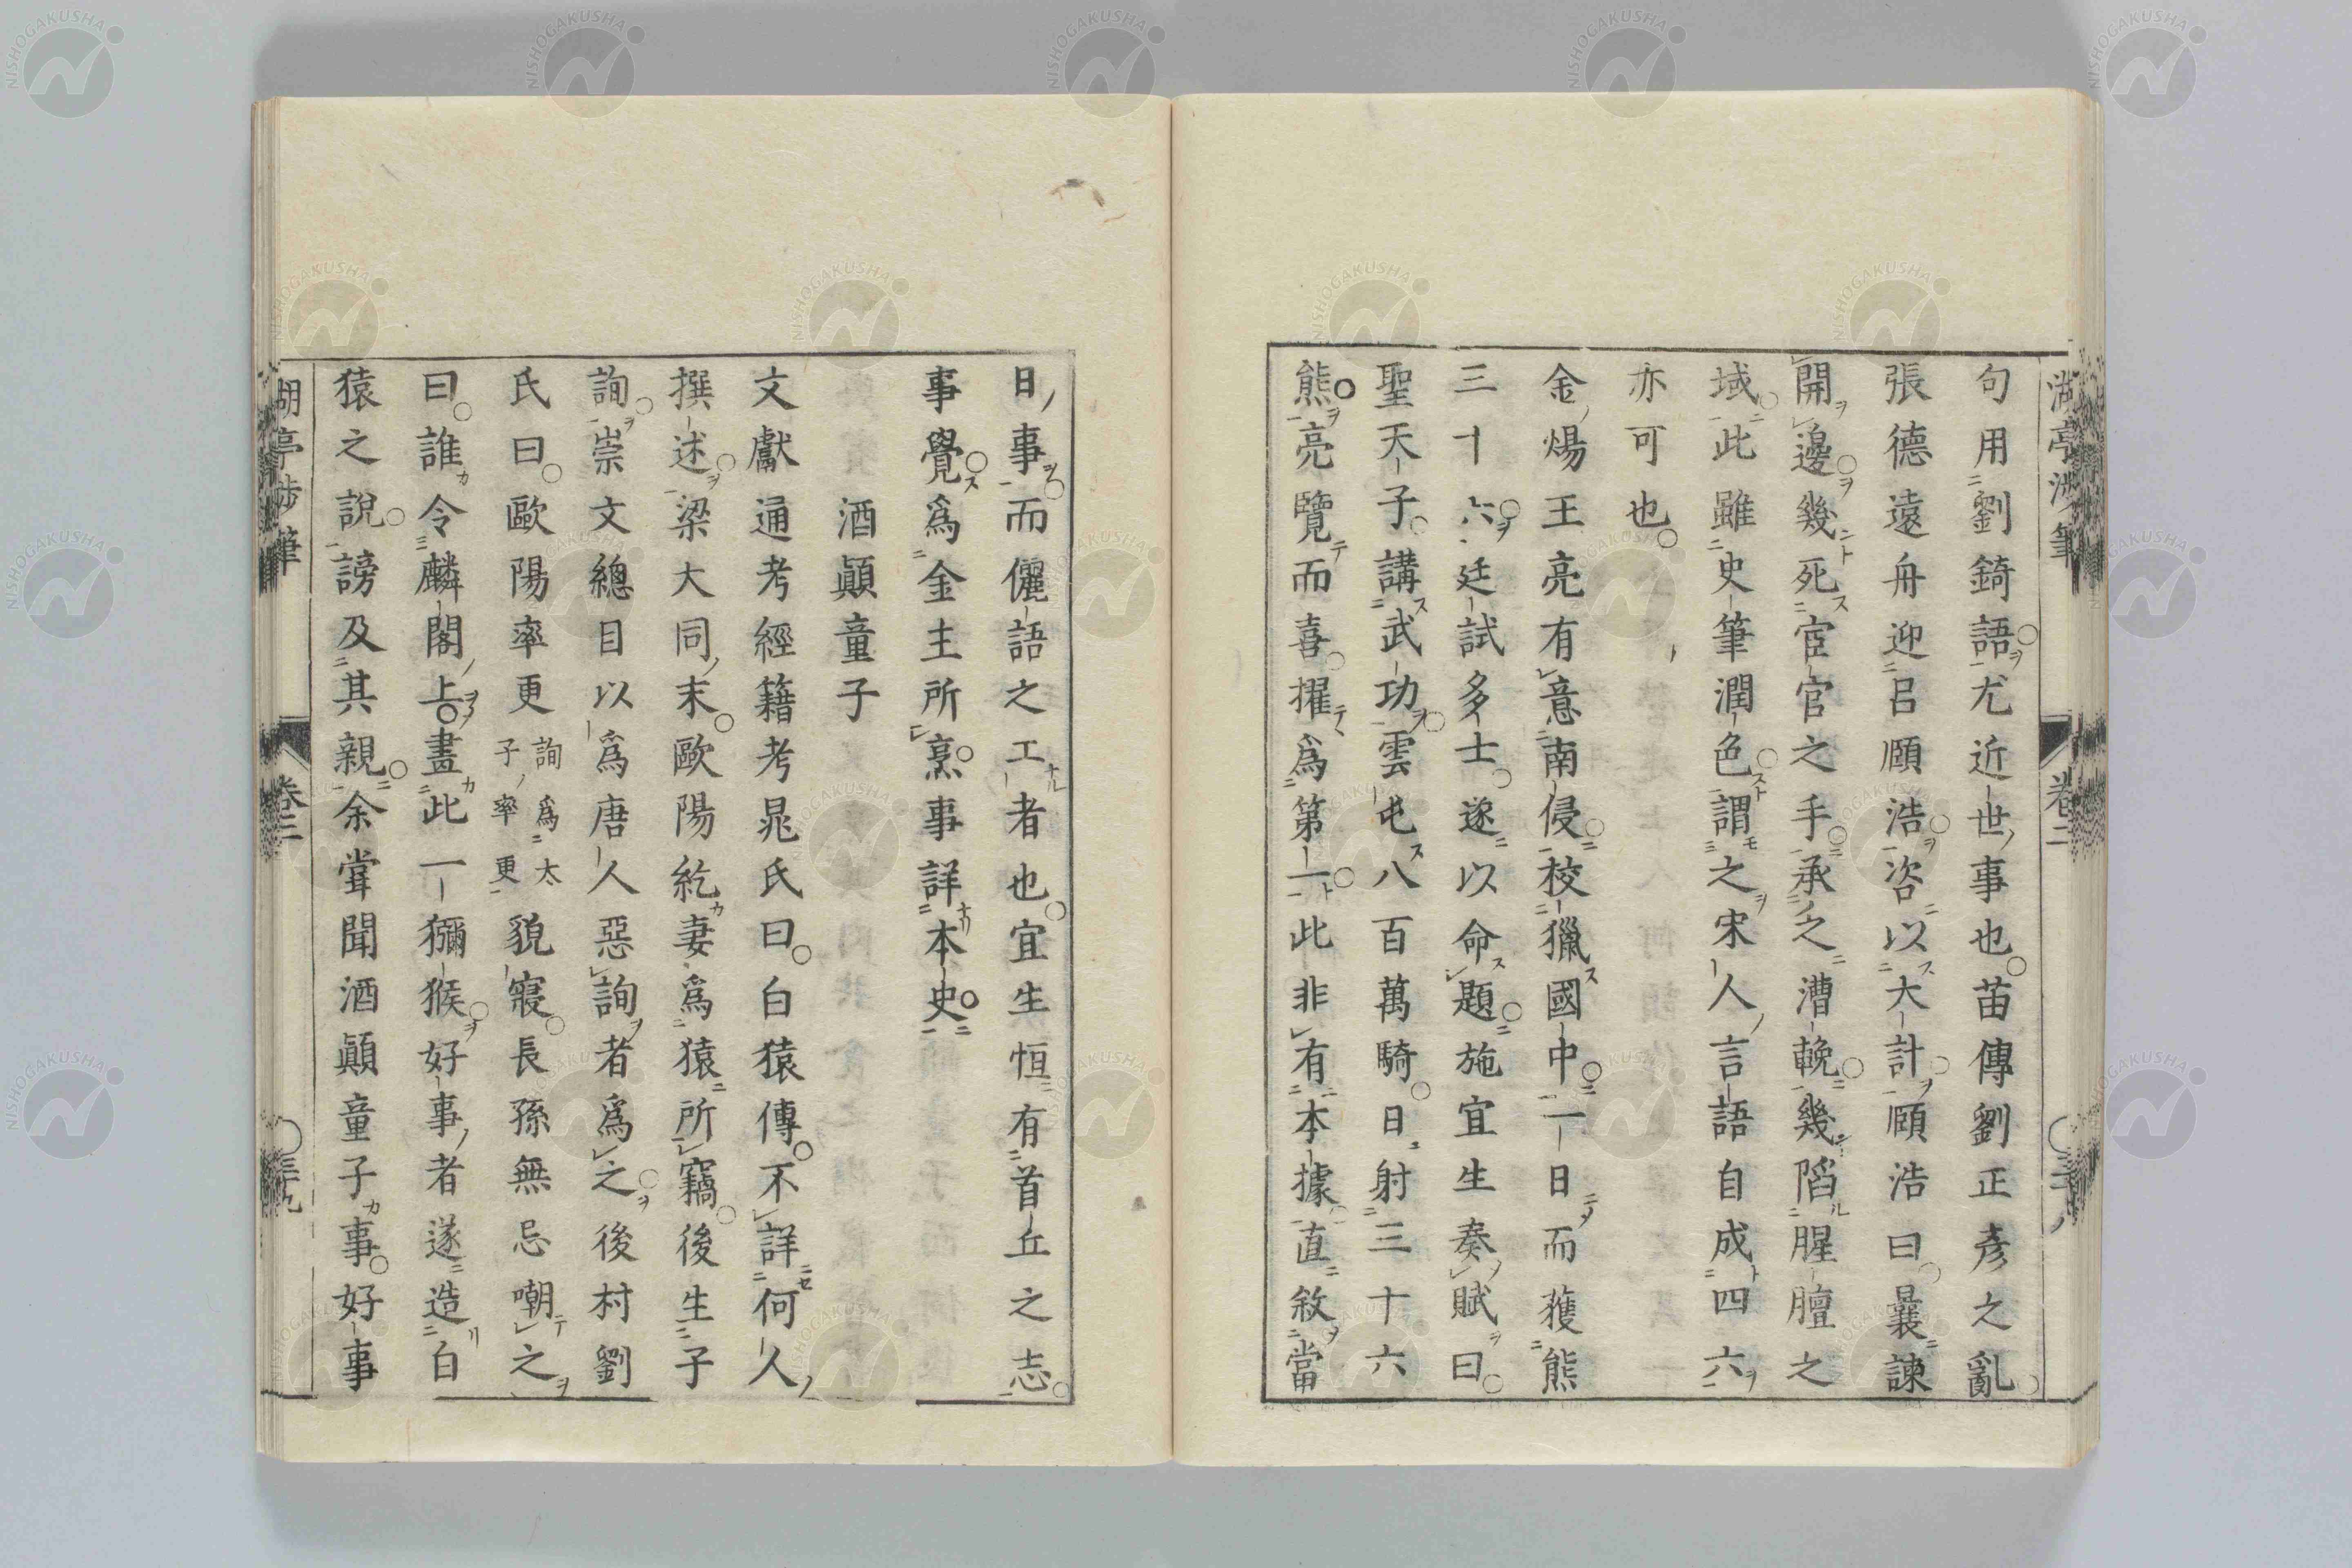 句用劉錡語尤近世事也苗傳劉正彥之亂
張德遠舟迎呂頤浩咨以大計頤浩曰曩諫
開邊幾死宦官之手承之漕輓幾陷腥膻之
域此雖史筆潤色謂之宋人言語自成四六
亦可也
金煬王亮有意南侵校獵國中一日而獲熊
三十六廷試多士遂以命題施宜生奏賦曰
聖天子講武功雲屯八百萬騎日射三十六
熊亮覽而喜擢為第一此非有本據直敘當
日事而儷語之工者也宜生恒有首丘之志
事覺為金主所烹事詳本史
酒顚童子
文獻通考經籍考晁氏曰白猿傳不詳何人
撰述梁大同末歐陽紇妻為猿所竊後生子
詢崇文總目以為唐人惡詢者為之後村劉
氏曰歐陽率更詢為太子率更貌寢長孫無忌嘲之
曰誰令麟閣上畫此一獼猴好事者遂造白
猿之說謗及其親余嘗聞酒顚童子事好事
湖亭涉筆
卷二
湖亭涉筆
卷二
三十九